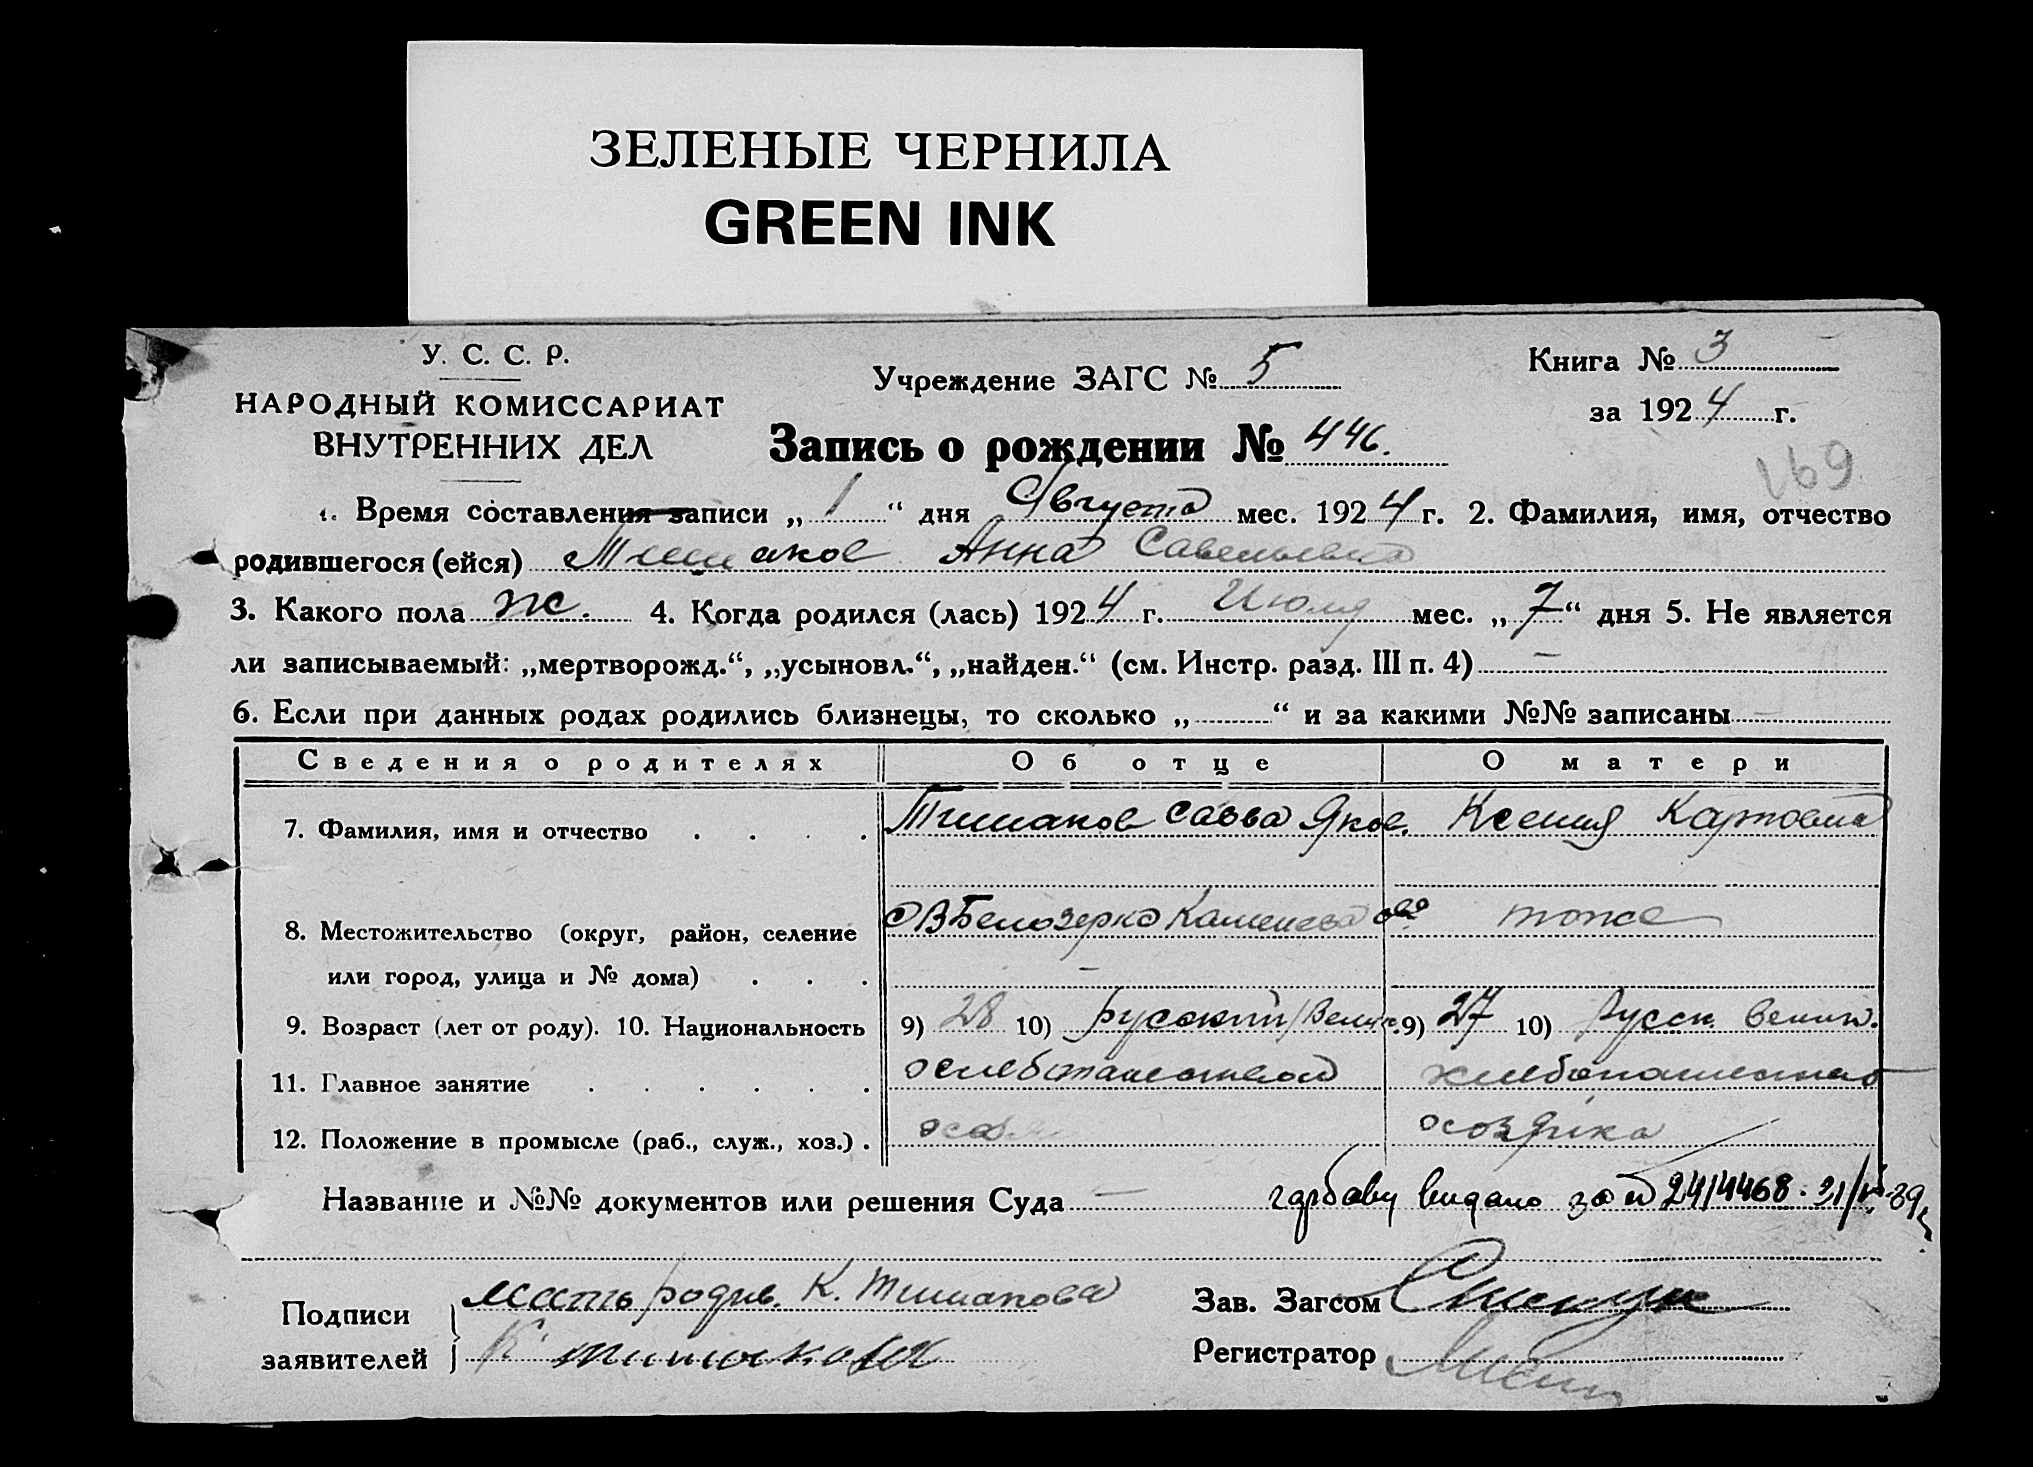 ЗЕЛЕНЫЕ ЧЕРНИЛА
GREEN INK
У. С. С. Р.
НАРОДНЫЙ КОМИССАРИАТ
ВНУТРЕННИХ ДЕЛ
Учреждение ЗАГС № 5
Книга № 3
за 1924 г.
Запись о рождении № 446.
169
1. Время составления записи „ 1 “ дня Августа мес. 1924 г. 2. Фамилия, имя, отчество
родившегося (ейся) Тишаков Анна Савельевна
3. Какого пола ж. 4. Когда родился (лась) 1924 г. Июля мес. „ 7 “ дня 5. Не является
ли записываемый: „мертворожд.“, „усыновл.“, „найден.“ (см. Инстр. разд. III п. 4) —
6. Если при данных родах родились близнецы, то сколько „ “ и за какими №№ записаны
Сведения о родителях Об отце О матери
7. Фамилия, имя и отчество Тишаков Савва Яков. Ксения Карповна
8. Местожительство (округ, район, селение В Белозерка тоже
или город, улица и № дома)
9. Возраст (лет от роду). 10. Национальность 9) 28 10) русский 9) 27 10) Русск. велик.
11. Главное занятие хлебопашество хлебопашество
12. Положение в промысле (раб., служ., хоз.) хозяйка
Название и №№ документов или решения Суда — видано за № 2414468.
Подписи мать родив. К. Тишакова Зав. Загсом
заявителей К. Тишакова Регистратор